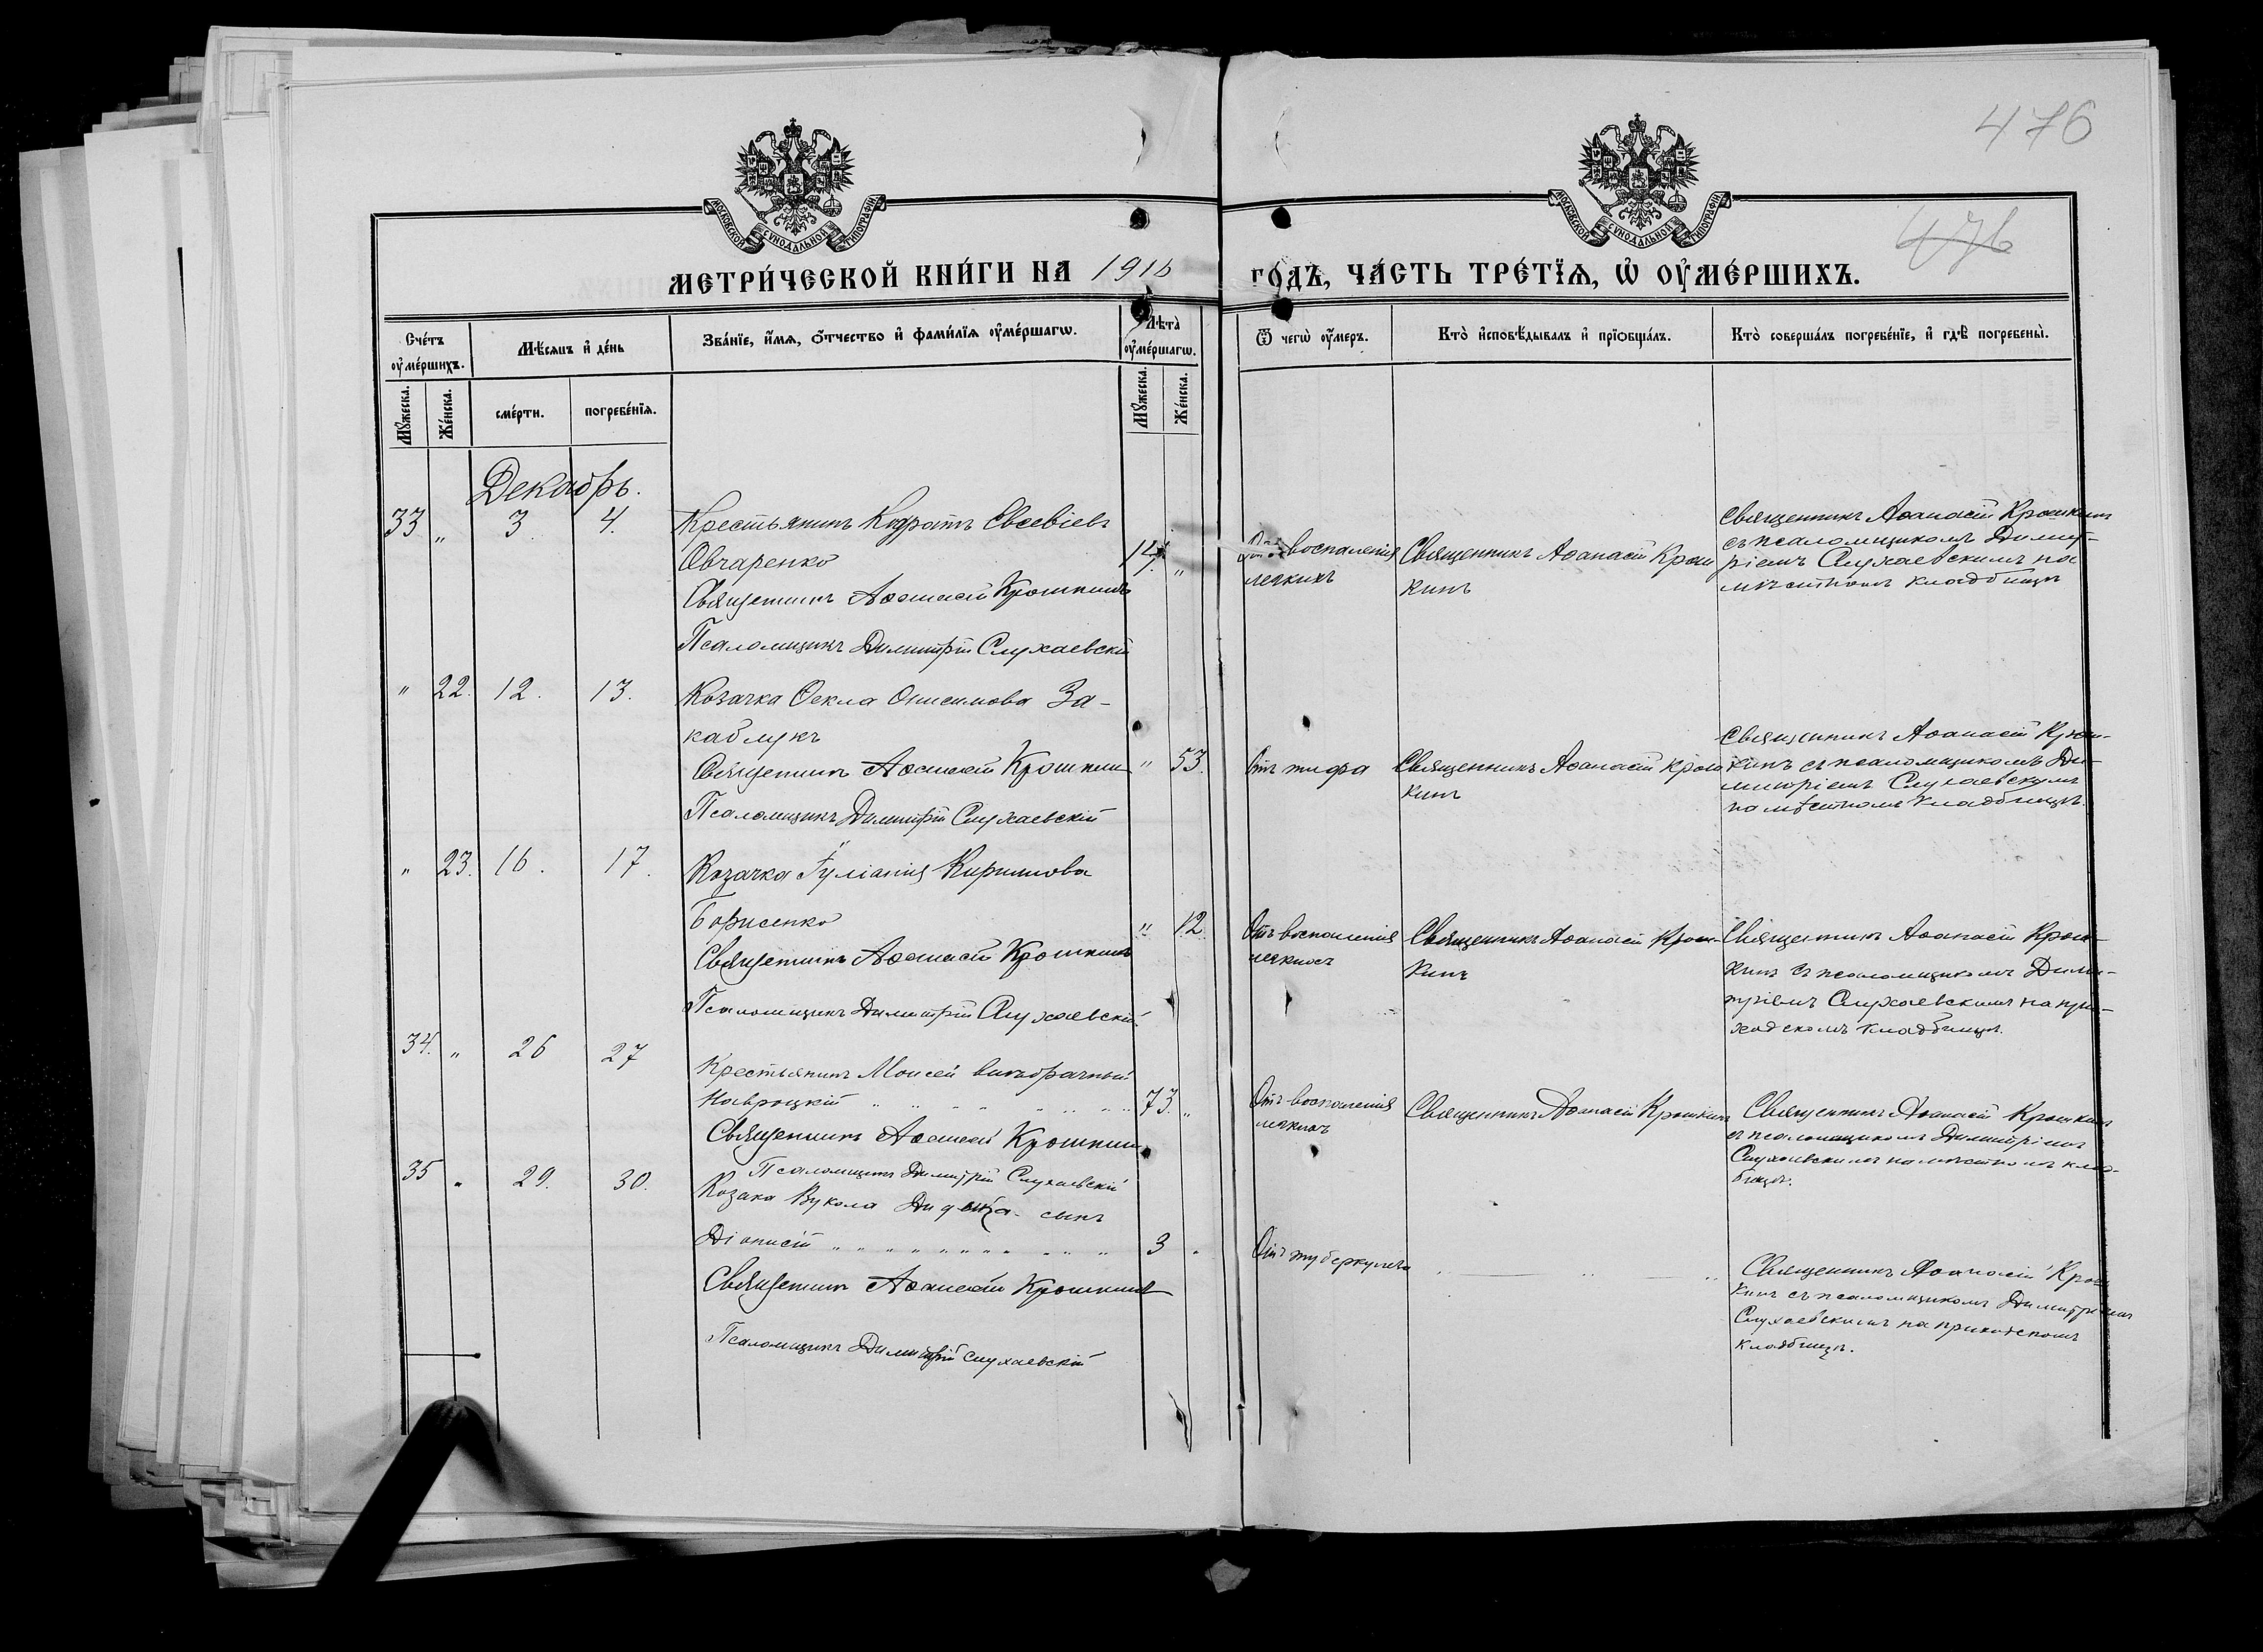 476
476
МОСКОВСКОЙ СѴНОДАЛЬНОЙ ТИПОГРАФІИ
МОСКОВСКОЙ СѴНОДАЛЬНОЙ ТИПОГРАФІИ
МЕТРИ́ЧЕСКОЙ КНИ́ГИ НА 1916 го́дъ, ЧА́СТЬ ТРЕ́ТЇѦ, Ѡ҆ ОУ҆МЕ́РШИХЪ.
Сче́тъ оу҆ме́ршихъ.
Мѣ́сяцъ и҆ де́нь
Зва́нїе, и҆́мѧ, ѻ҆́тчество и҆ фами́лїѧ оу҆ме́ршагѡ.
Лѣта̀ оу҆ме́ршагѡ.
Ѿ чегѡ̀ оу҆́меръ.
Кто̀ и҆сповѣ́дывалъ и҆ прїѻбща́лъ.
Кто̀ соверша́лъ погребе́нїе, и҆ гдѣ̀ погребены̀.
Мꙋ́жеска.
Же́нска.
сме́рти.
погребе́нїѧ.
Мꙋ́жеска.
Же́нска.
Декабрь.
33 „ 3 4. Крестьянинъ Кодратъ Евсевіевъ
Овчаренко 14 „
Священникъ Аѳанасій Крошкинъ
Псаломщикъ Димитрій Слухаевскій
Отъ воспаленія
легкихъ
Священникъ Аѳанасій Крош
кинъ
Священникъ Аѳанасій Крошкинъ
съ псаломщикомъ Димит-
ріемъ Слухаевскимъ на
мѣстномъ кладбищѣ
„ 22. 12. 13. Козачка Ѳекла Онисимова За-
каблукъ
Священникъ Аѳанасій Крошкин „ 53.
Псаломщикъ Димитрій Слухаевскій
Отъ тифа
Священникъ Аѳанасій Крош
кинъ
Священникъ Аѳанасій Крош-
кинъ съ псаломщикомъ Ди-
митріемъ Слухаевскимъ
на мѣстномъ кладбищѣ.
„ 23. 16. 17. Козачка Іуліанія Кириллова
Борисенко „ 12.
Священникъ Аѳанасій Крошкинъ
Псаломщикъ Димитрій Слухаевскій
Отъ воспаленія
легкихъ
Священникъ Аѳанасій Крош-
кинъ
Священникъ Аѳанасій Крош-
кинъ съ псаломщикомъ Дими-
тріемъ Слухаевскимъ на при-
ходскомъ кладбищѣ.
34. „ 26 27 Крестьянинъ Моисей внѣбрачный
Навроцкій „ „ „ „ „ „ „ „ 73. „
Священникъ Аѳанасій Крошкин
Псаломщикъ Димитрій Слухаевскій
Отъ воспаленія
легкихъ
Священникъ Аѳанасій Крошкинъ
Священникъ Аѳанасій Крошкинъ
съ псаломщикомъ Димитріемъ
Слухаевскимъ на мѣстномъ клад-
бищѣ.
35 „ 29. 30. Козака Вукола сынъ
Діонисій „ „ „ „ „ „ „ „ „ „ „ 3 „
Священникъ Аѳанасій Крошкинъ
Псаломщикъ Димитрій Слухаевскій
Отъ туберкулеза
„ — „ — „
Священникъ Аѳанасій Крош
кинъ съ псаломщикомъ Димитріемъ
Слухаевскимъ на приходскомъ
кладбищѣ.